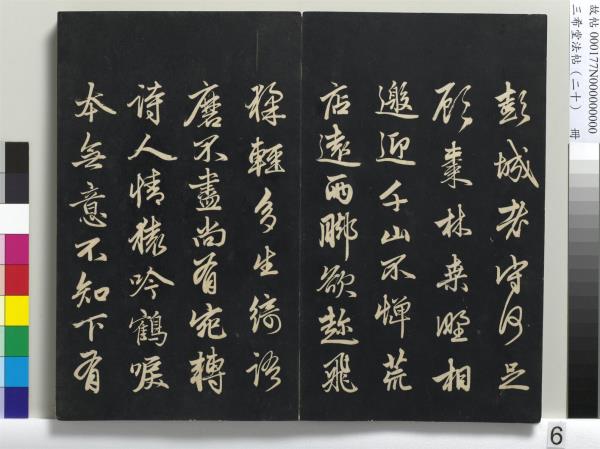 彭城老守何足
顧棗林桑野相
邀迎千山不憚荒
店遠兩腳欲趁飛
猱輕多生綺語
磨不盡尚有宛轉
詩人情猿吟鶴唳
本無意不知下有
故帖 000177N000000000
三希堂法帖（二十） 冊
6